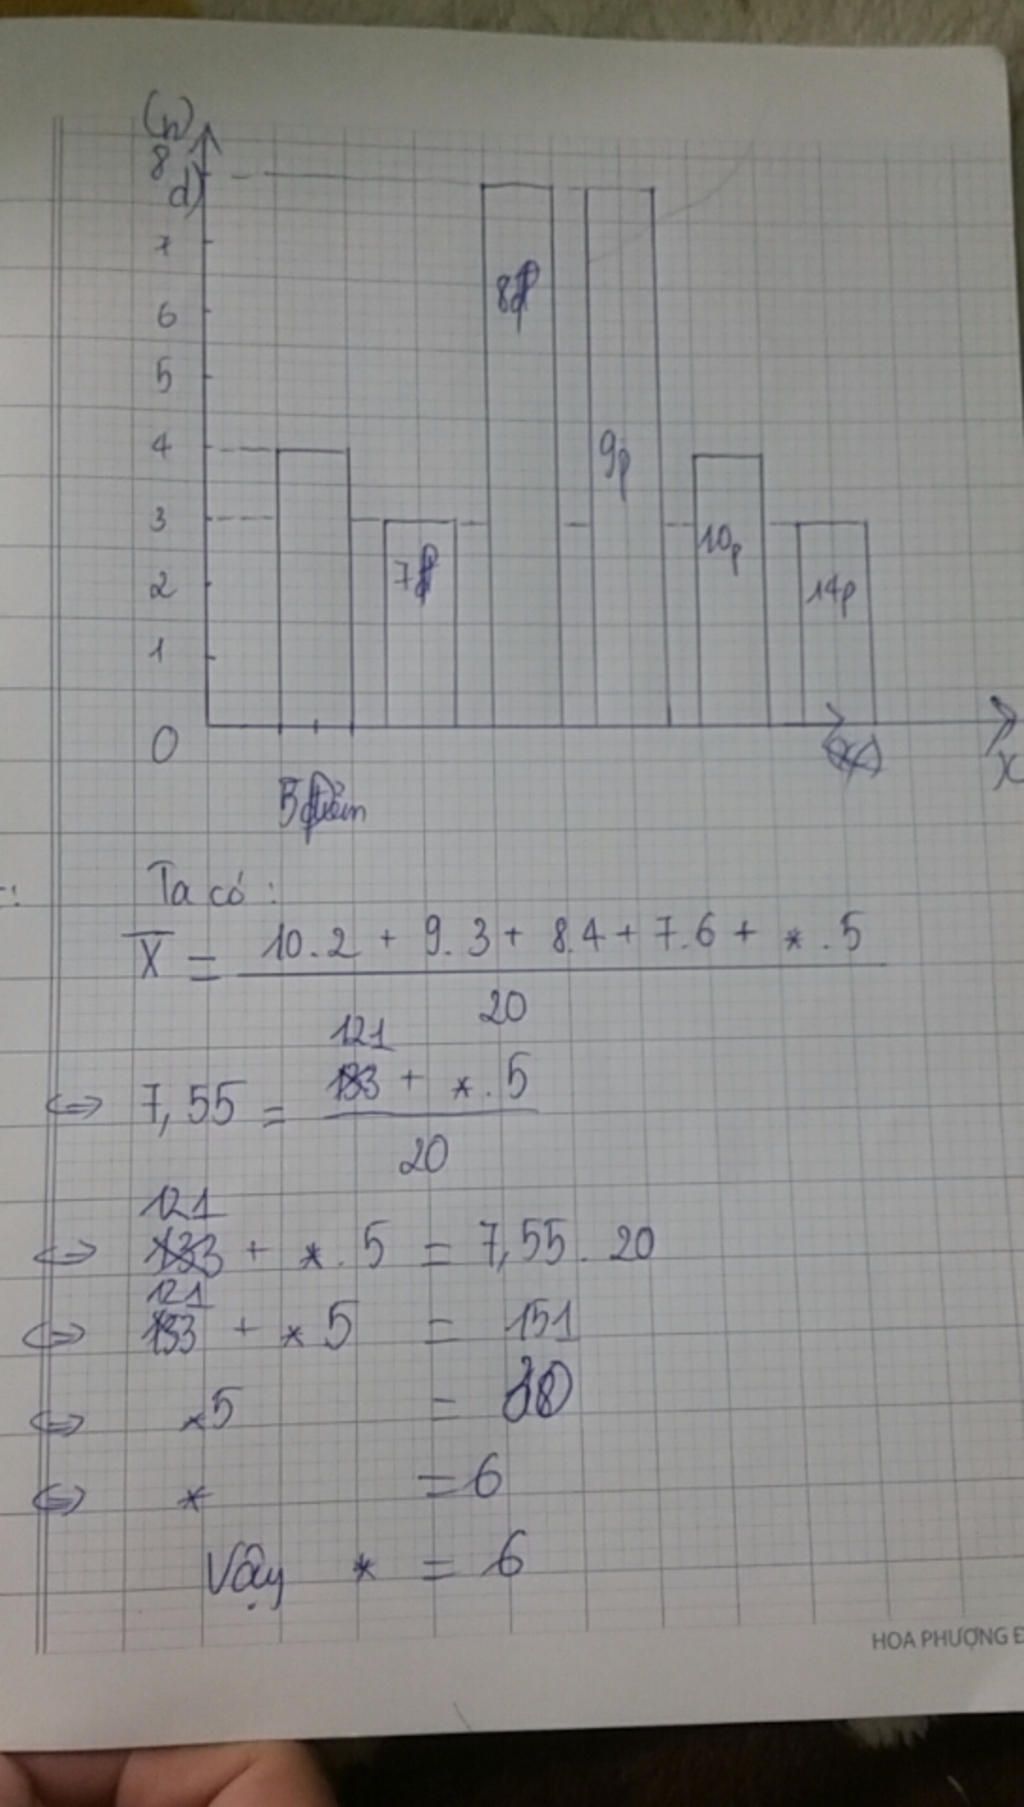 (n)
8
d)
7
6
5
4
3
2
1
0
7p
8p
9p
10p
14p
x
5 điểm
Ta có :
X̅ = 10.2 + 9.3 + 8.4 + 7.6 + * . 5
20
121
⇔ 7,55 = 133 + * . 5
20
121
⇔ 133 + * . 5 = 7,55 . 20
121
⇔ 133 + * 5 = 151
⇔ *5 = 30
⇔ * = 6
Vậy * = 6
HOA PHƯỢNG Đ